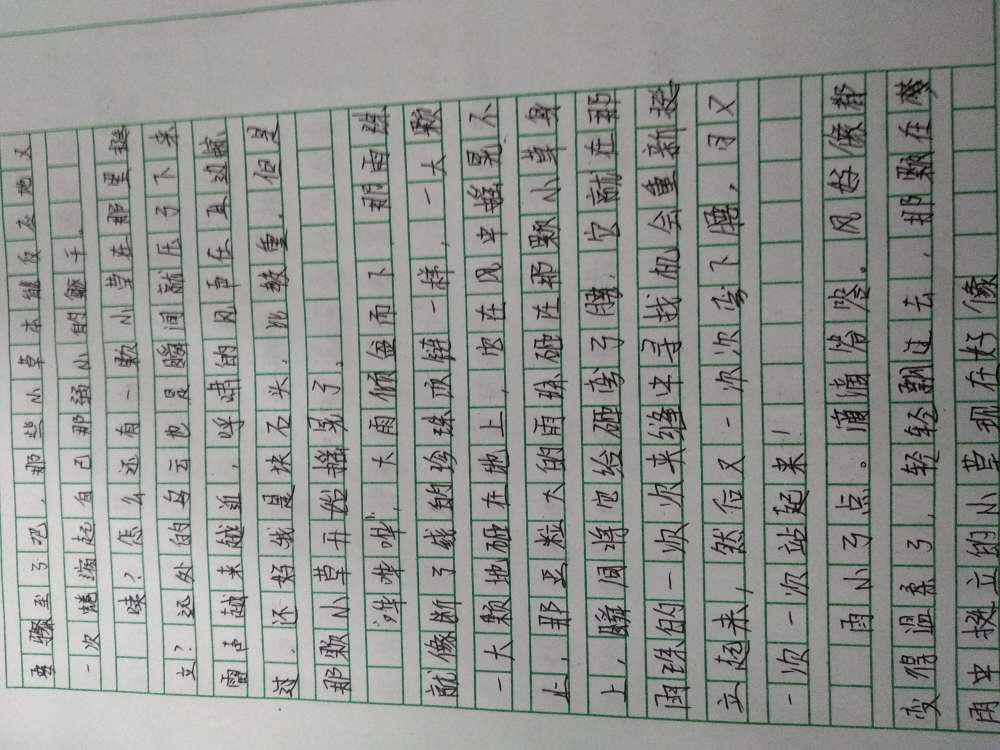 要骤至了吧，那些小草本能反应地又
一次蜷缩起自己那弱小的躯干。
咦？怎么还有一颗小草在那里挺
立？远处的乌云也是瞬间就压了下来
雷声越来越近，呼啸的风声在耳边掠
过，还好我是块石头，比较重，但是
那颗小草开始摇晃了。
“哗哗哗”，大雨倾盆而下，那雨珠
就像断了线的珍珠项链一样，一大颗
一大颗地砸在地上，它在风中摇晃不
止，那豆粒大的雨珠砸在那颗小草身
上，瞬间将它给砸弯了腰，它就在那
雨珠的一次次夹缝中寻找机会重新挺
立起来，然后又一次次弯下腰，又
一次一次站起来！
雨小了点。滴滴答答。风好像都
变得温柔了，轻轻飘过去，那颗在
雨中挺立的小草现在好像